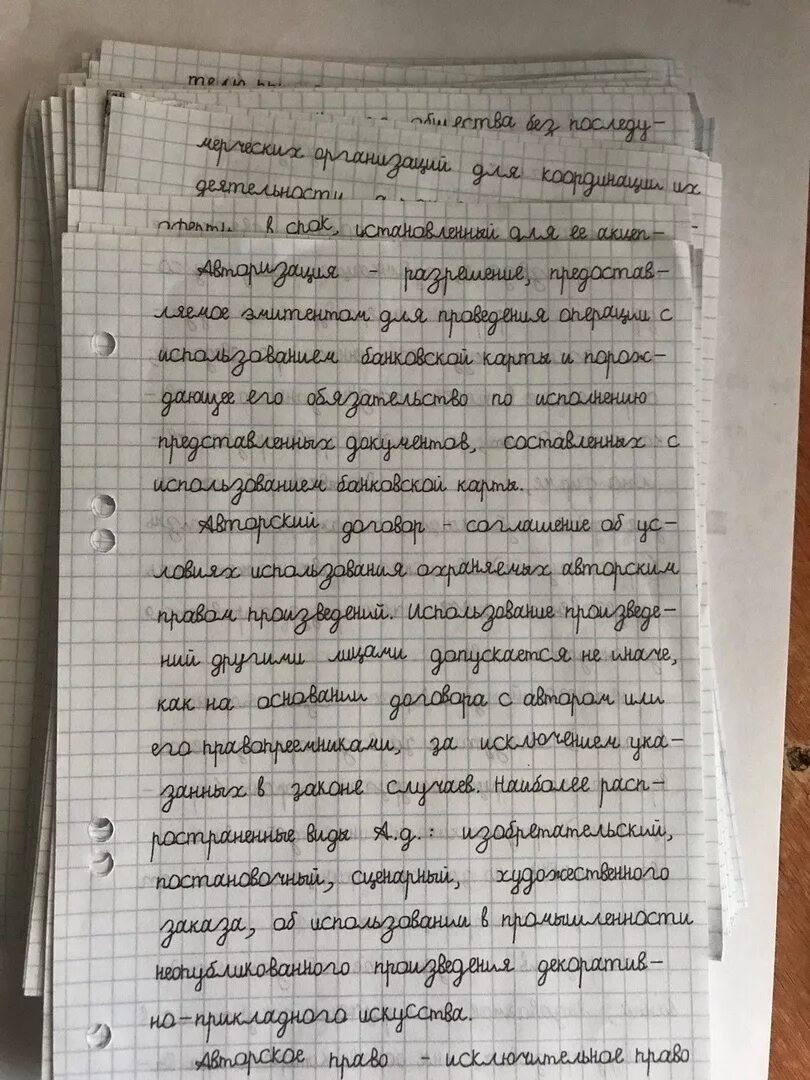 общества без последу-
мерческих организаций для координации их
деятельности
в срок, установленный для ее акцеп-
Авторизация - разрешение, предостав-
ляемое эмитентом для проведения операции с
использованием банковской карты и порож-
дающее его обязательство по исполнению
представленных документов, составленных с
использованием банковской карты.
Авторский договор - соглашение об ус-
ловиях использования охраняемых авторским
правом произведений. Использование произведе-
ний другими лицами допускается не иначе,
как на основании договора с автором или
его правопреемниками, за исключением ука-
занных в законе случаев. Наиболее расп-
ространенные виды А.д.: изобретательский,
постановочный, сценарный, художественного
заказа, об использовании в промышленности
неопубликованного произведения декоратив-
но-прикладного искусства.
Авторское право - исключительное право